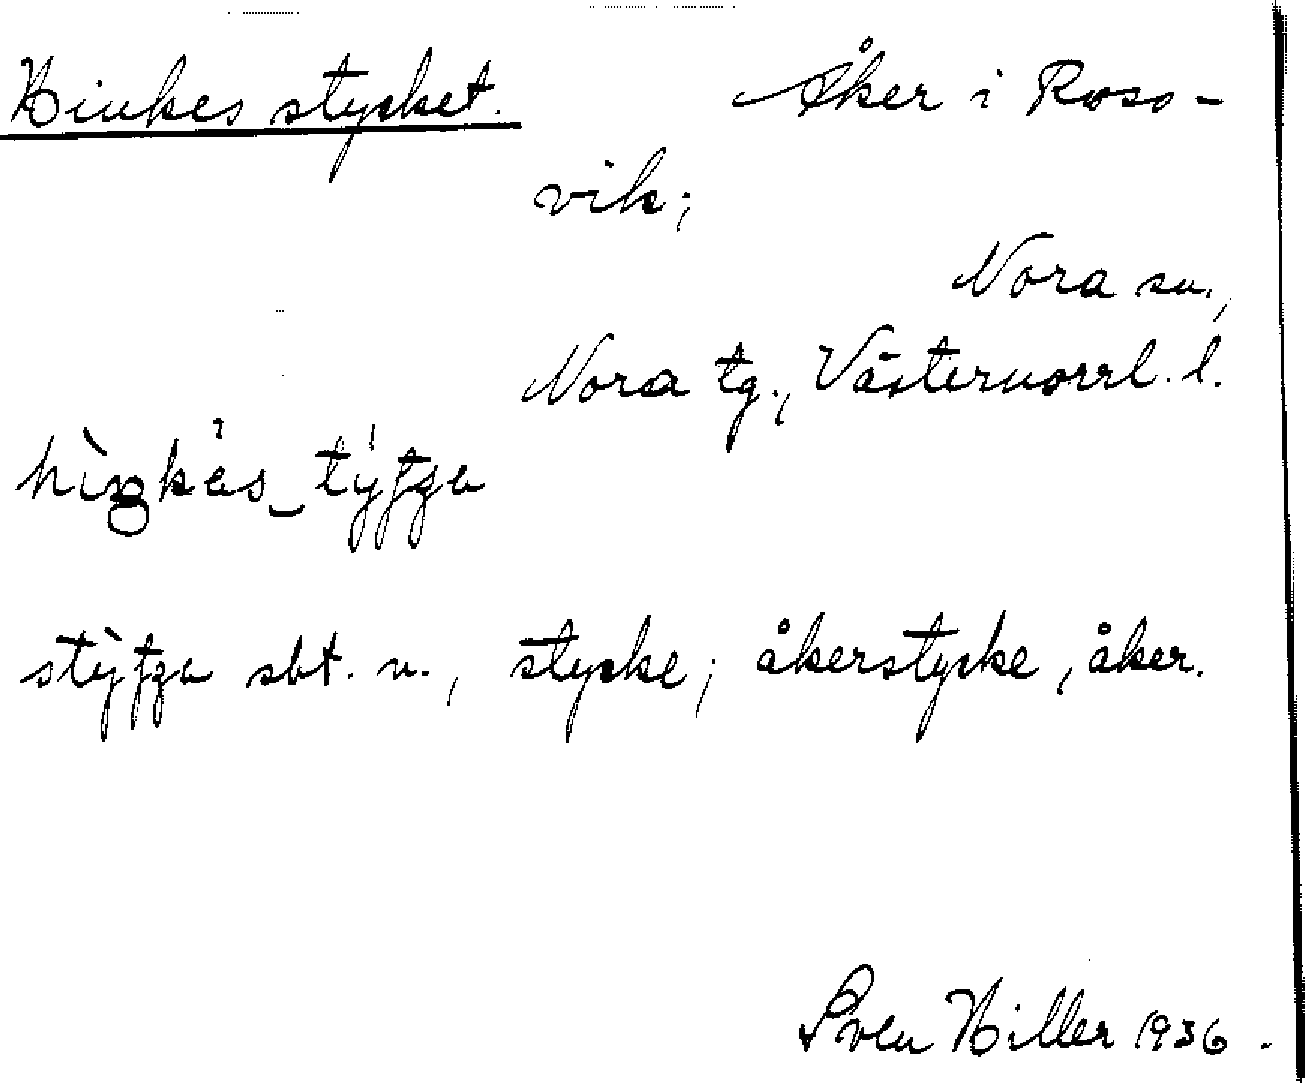 Hinkes stycket. Åker i Ross-
vik;
Nora sn.,
Nora tg., Västernorrl. l.
sbt. n., stycke; åkerstycke, åker.
Sven Hiller 1936.